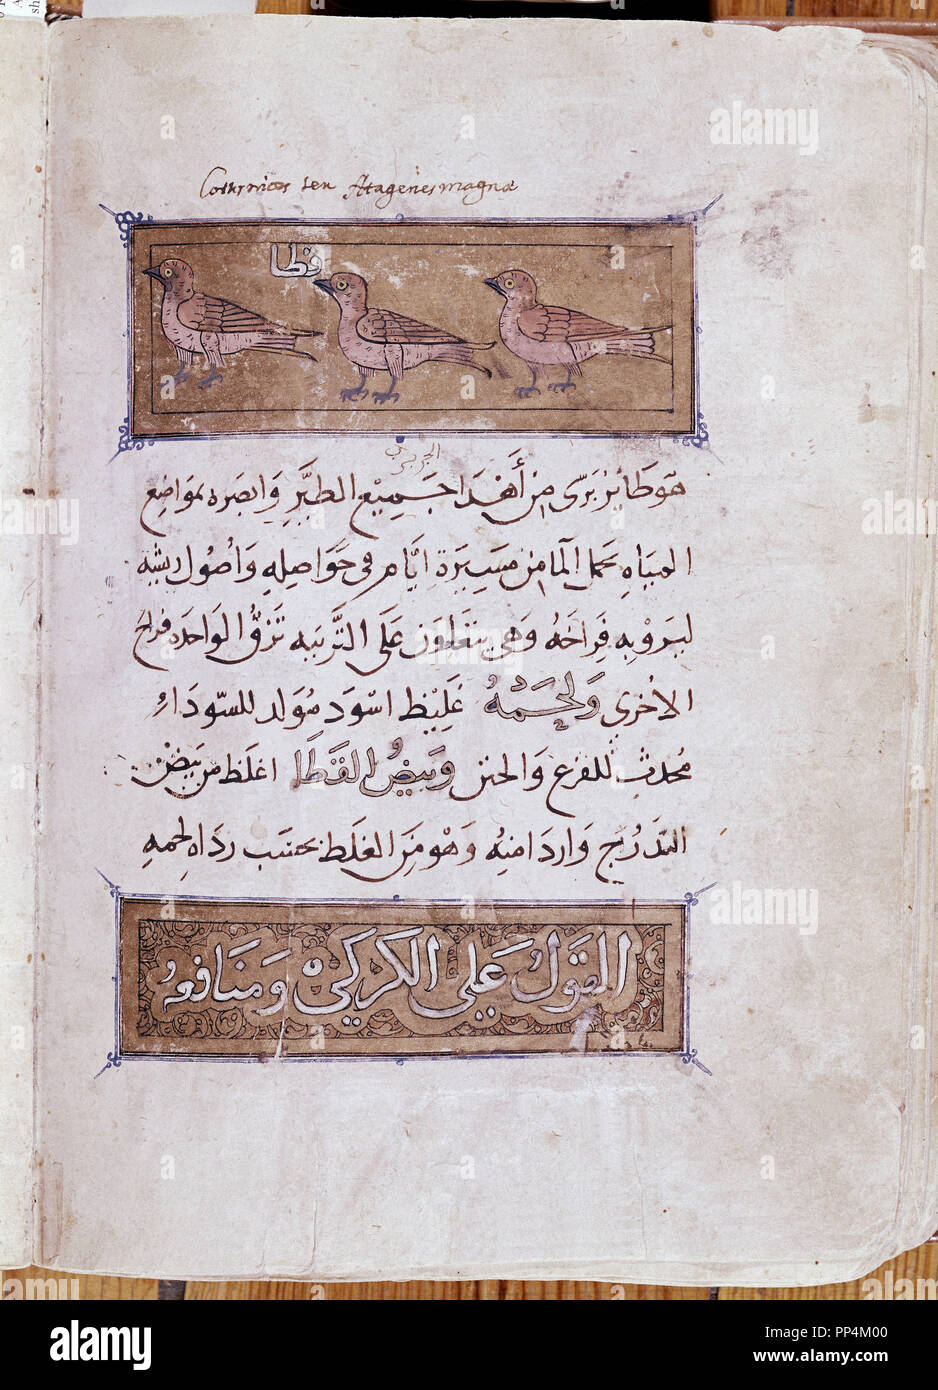 Coturnices seu Atagenes magnae
قطا
هو طائر برى من أهدا جميع الطير وابصره بمواضع
المياه يحمل الما من مسيرة ايام فى حواصله وأصول ريشه
ليروى به فراخه وهى يتعطون على التربيه تزق الواحده فراخ
الاخرى ولحمه غليظ اسود مولد للسوداء
محدث للفزع والحزن وبيض القطا اغلظ من بيض
التدرج واردا منه وهو من الغلظ بحسب رداه لحمه
القول على الكركى ومنافعه
alamy
alamy stock photo
Image ID: PP4M00
www.alamy.com